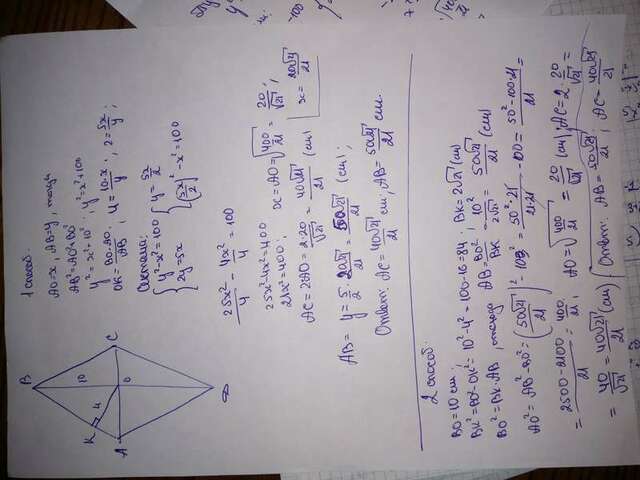 1 способ.
B
AO=x, AB=y, тогда
AB²=AO²+BO²
y²=x²+10²; y²=x²+100
OK=BO·AO/AB; 4=10·x/y; 2=5x/y;
K
4
10
A
O
C
Система:
{y²-x²=100 {y=5x/2
{2y=5x {(5x/2)²-x²=100
25x²/4 - 4x²/4 = 100
25x²-4x²=400
21x²=400; x=AO=√(400/21)=20/√21;
AC=2AO=2·20/√21=40√21/21 (см) x=20√21/21
AB= y=5/2·20√21/21=50√21/21 (см);
Ответ: AC=40√21/21 см; AB=50√21/21 см.
2 способ.
BO=10 см;
BK²=BO²-OK²=10²-4²=100-16=84; BK=2√21 (см)
BO²=BK·AB, откуда AB=BO²/BK=10²/2√21=50√21/21 (см)
AO²=AB²-BO²=(50√21/21)²-10²=50²·21/21·21-100=50²-100·21/21=
=2500-2100/21=400/21; AO=√(400/21)=20/√21 (см); AC=2·20/√21=
=40/√21=40√21/21 (см) Ответ: AB=50√21/21; AC=40√21/21